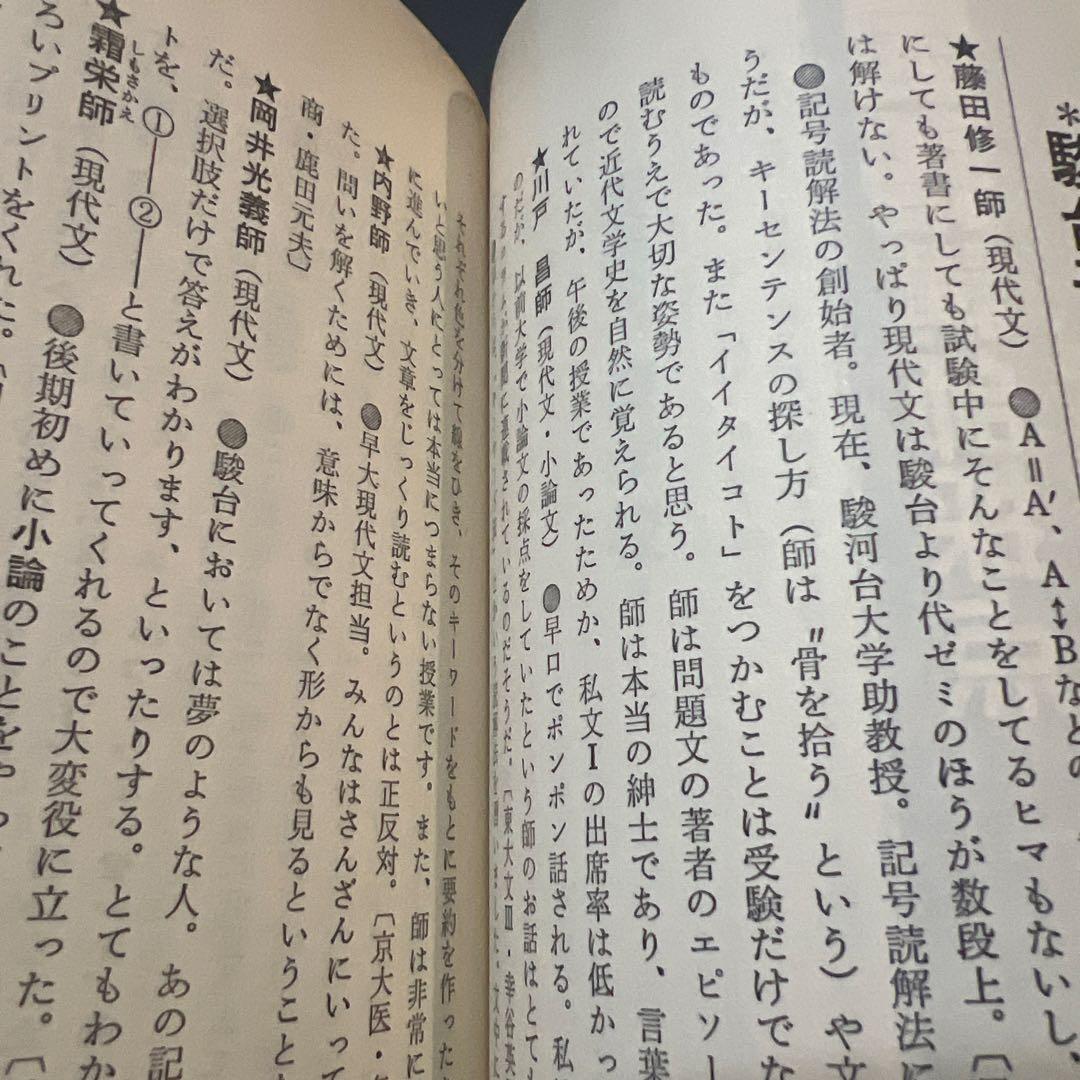 *駿台
★藤田修一師（現代文）　●A＝A′、A↕Bなどの
にしても著書にしても試験中にそんなことをしてるヒマもないし、
は解けない。やっぱり現代文は駿台より代ゼミのほうが数段上。〔
●記号読解法の創始者。現在、駿河台大学助教授。記号読解法に
うだが、キーセンテンスの探し方（師は〝骨を拾う〟という）や文
ものであった。また「イイタイコト」をつかむことは受験だけでな
読むうえで大切な姿勢であると思う。師は問題文の著者のエピソー
ので近代文学史を自然に覚えられる。師は本当の紳士であり、言葉
れていたが、午後の授業であったためか、私文Ⅰの出席率は低かっ
★川戸　昌師（現代文・小論文）　●早口でポンポン話される。私
のだが、以前大学で小論文の採点をしていたという師のお話はとても
に連載されているのだそうだ。〔東大文Ⅲ・幸谷英
それぞれ色を分けて線をひき、そのキーワードをもとに要約を作った
いと思う人にとっては本当につまらない授業です。また、師は非常に
に進んでいき、文章をじっくり読むというのとは正反対。〔京大医・
★内野師（現代文）　●早大現代文担当。みんなはさんざんにいって
た。問いを解くためには、意味からでなく形からも見るということ
商・鹿田元夫〕
★岡井光義師（現代文）　●駿台においては夢のような人。あの記
だ。選択肢だけで答えがわかります、といったりする。とてもわか
トを、①――②――と書いていってくれるので大変役に立った。〔
★霜栄師（現代文）　●後期初めに小論のことをやっ
しもさかえ
ろいプリントをくれた。